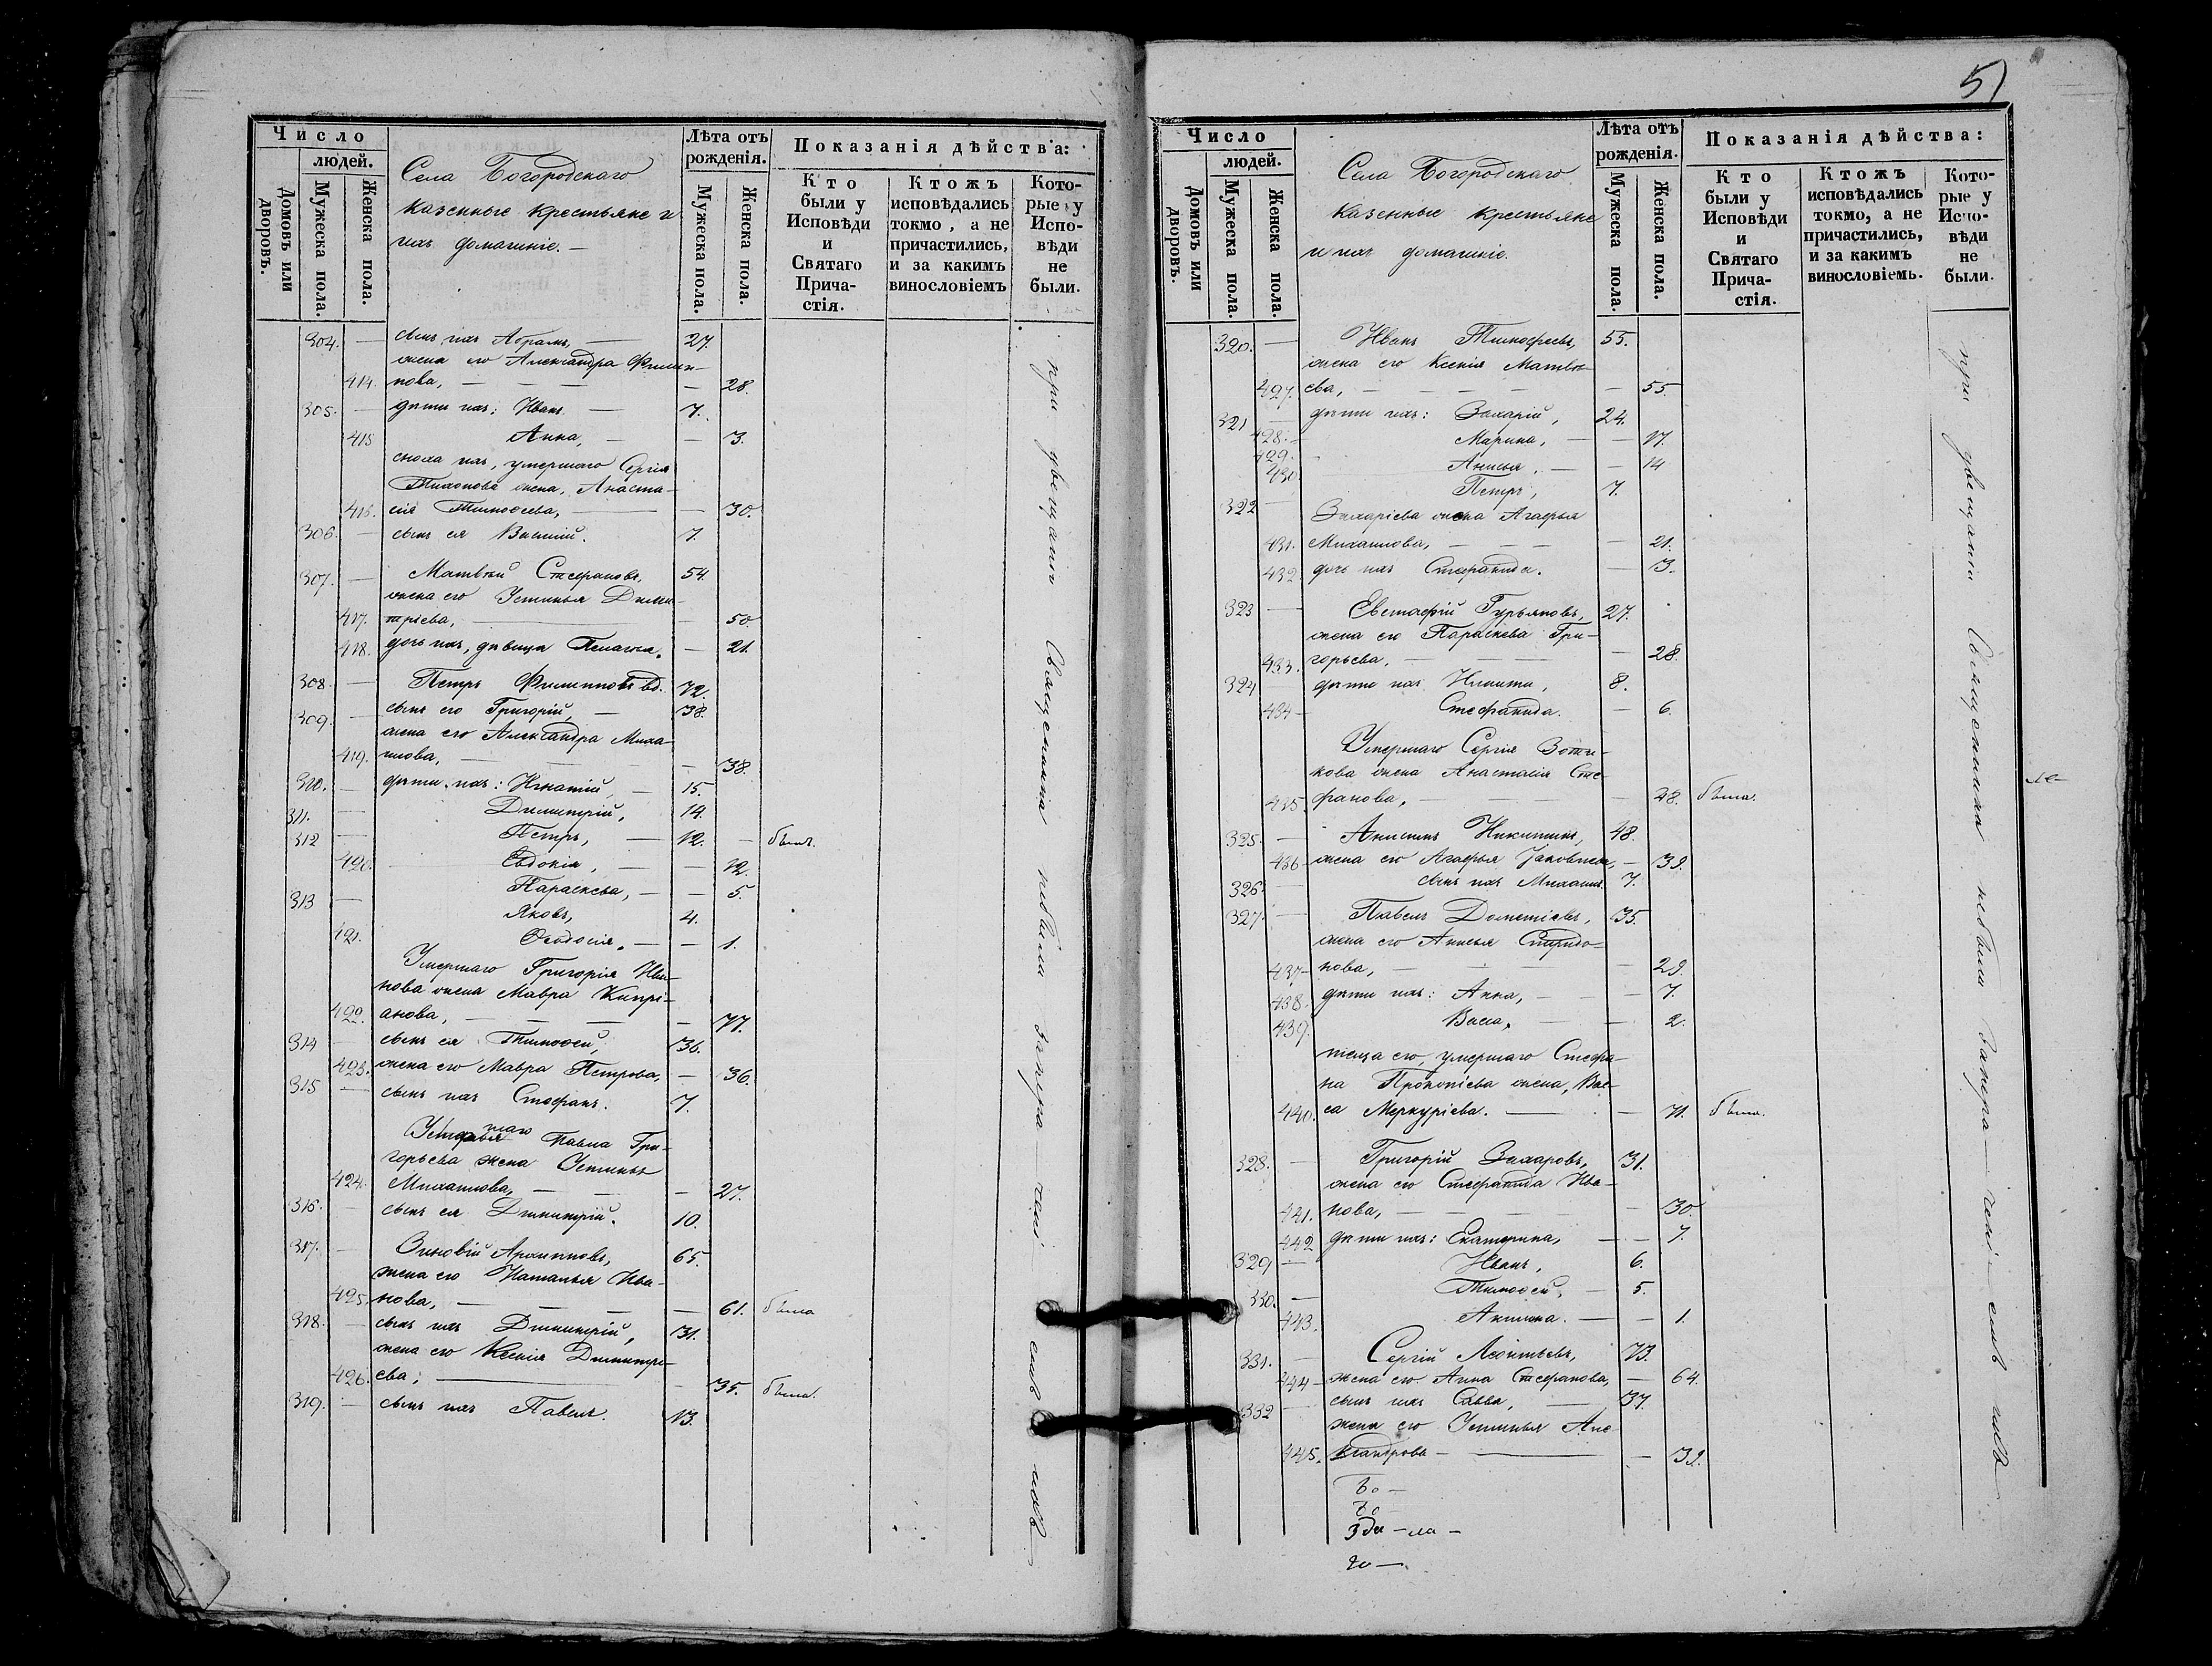 Число
людей.
Домовъ или дворовъ.
Мужеска пола.
Женска пола.
Села Богородскаго
казенные крестьяне и
ихъ домашніе. —
Лѣта отъ рожденія.
Мужеска пола.
Женска пола.
Показанія дѣйства:
Кто были у Исповѣди и Святаго Прича-стія.
Ктожъ исповѣдались токмо, а не причастились, и за какимъ винословіемъ
Кото-рые у Испо-вѣди не были.
304. — сынъ ихъ Абрамъ, — 27.
жена его Александра Филип-
414. пова, — — — — 28.
305. — дѣти ихъ: Иванъ — 7.
415 Анна, — — 3.
сноха ихъ, умершаго Сергія
Тихонова жена, Анаста-
416. сія Тимоѳеева, — — 30.
306. — сынъ ея Василій. 7.
307. — Матвѣй Стефановъ, 54.
жена его Устинья Дими-
417. тріева, — — 50.
418. дочь ихъ, дѣвица Пелагія. — 21.
308. — Петръ Филипповъ вд. 72.
309. — сынъ его Григорій, — 38.
жена его Александра Миха-
419. илова, — — — 38.
310. — дѣти ихъ: Игнатій, — 15.
311. — Димитрій, 14.
312 — Петръ, — 12. — былъ.
420. Евдокія, — — 12.
Параскева, — — 5.
313 — Яковъ, 4.
421. Ѳеодосія. — — 1.
Умершаго Григорія Ива-
нова жена Мавра Кипрі-
422. анова, — — — — 77.
314 — сынъ ея Тимоѳей, 36.
423. жена его Мавра Петрова, — 36.
315 — сынъ ихъ Стефанъ. 7.
шаго Павла Гри-
горьева жена Устинья
424. Михаилова, — — — 27.
316. — сынъ ея Димитрій. 10.
317. — Зиновій Архиповъ, 65.
жена его Наталья Ива-
425. нова, — — — — 61. была
318. — сынъ ихъ Димитрій, 31.
жена его Ксенія Димитрі-
426. ева; — — 35. была.
319. — сынъ ихъ Павелъ. 13.
при увещаніи Священника небыли
51
Число
людей.
Домовъ или дворовъ.
Мужеска пола.
Женска пола.
Села Богородскаго
казенные крестьяне
и ихъ домашніе.
Лѣта отъ рожденія.
Мужеска пола.
Женска пола.
Показанія дѣйства:
Кто были у Исповѣди и Святаго Прича-стія.
Ктожъ исповѣдались токмо, а не причастились, и за какимъ винословіемъ.
Кото-рые у Испо-вѣди не были.
320. — Иванъ Тимофеевъ, 55.
жена его Ксенія Матвѣ-
427. ева, — — — — — 55.
321 — дѣти ихъ: Захарій, 24.
428. — Марина, — — 17.
429. Анисья, — — 14
430 Петръ, 7.
322 — Захаріева жена Агафья
431. Михаилова, — — — — 21.
432. дочь ихъ Стефанида. — 3.
323 — Евстафій Гурьяновъ, 27.
жена его Параскева Гри-
433. горьева, — — — — 28.
324 дѣти ихъ Никита, 8.
434 — Стефанида. — 6.
Умершаго Сергія Зоти-
кова жена Анастасія Сте-
435. фанова, — — — — 48. была.
325. — Анисимъ Никитинъ, 48.
436 — жена его Агафья Яковлева, — 39.
326 — сынъ ихъ Михаилъ. 7.
327. — Павелъ Дометіевъ, 35.
жена его Анисья Спиридо-
437 — нова, — — — — 29.
438. дѣти ихъ: Анна, — — — 7.
439. Васса, — — 2.
теща его, умершаго Стефа-
на Прокопіева жена, Вас-
440. са Меркуріева. — — 71. была.
328. — Григорій Захаровъ, 31.
жена его Стефанида Ива-
441. нова, — — — — — 30.
442 дѣти ихъ: Екатерина, — — 7.
329 — Иванъ, 6.
330. — Тимоѳей, — 5.
443. Акилина. — — 1.
331. — Сергій Леонтьевъ, 73.
444 — жена его Анна Стефанова, — 64.
332 — сынъ ихъ Савва, — 37.
жена его Устинья Але-
445. ксандрова — — — 39.
при увещаніи Священника небыли